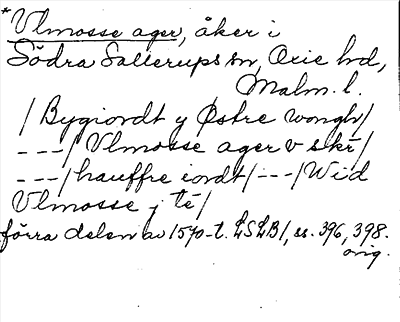 *Vlmosse ager, åker i
Södra Sallerups sn, Oxie hd,
Malm. l.
/Bygiordt y Østre wongh/
---/Vlmosse ager v skr/
---/hauffre iordt/---/Wid
Vlmosse j té/
förra delen av 1570-t. LSLB1, ss. 396, 398.
orig.